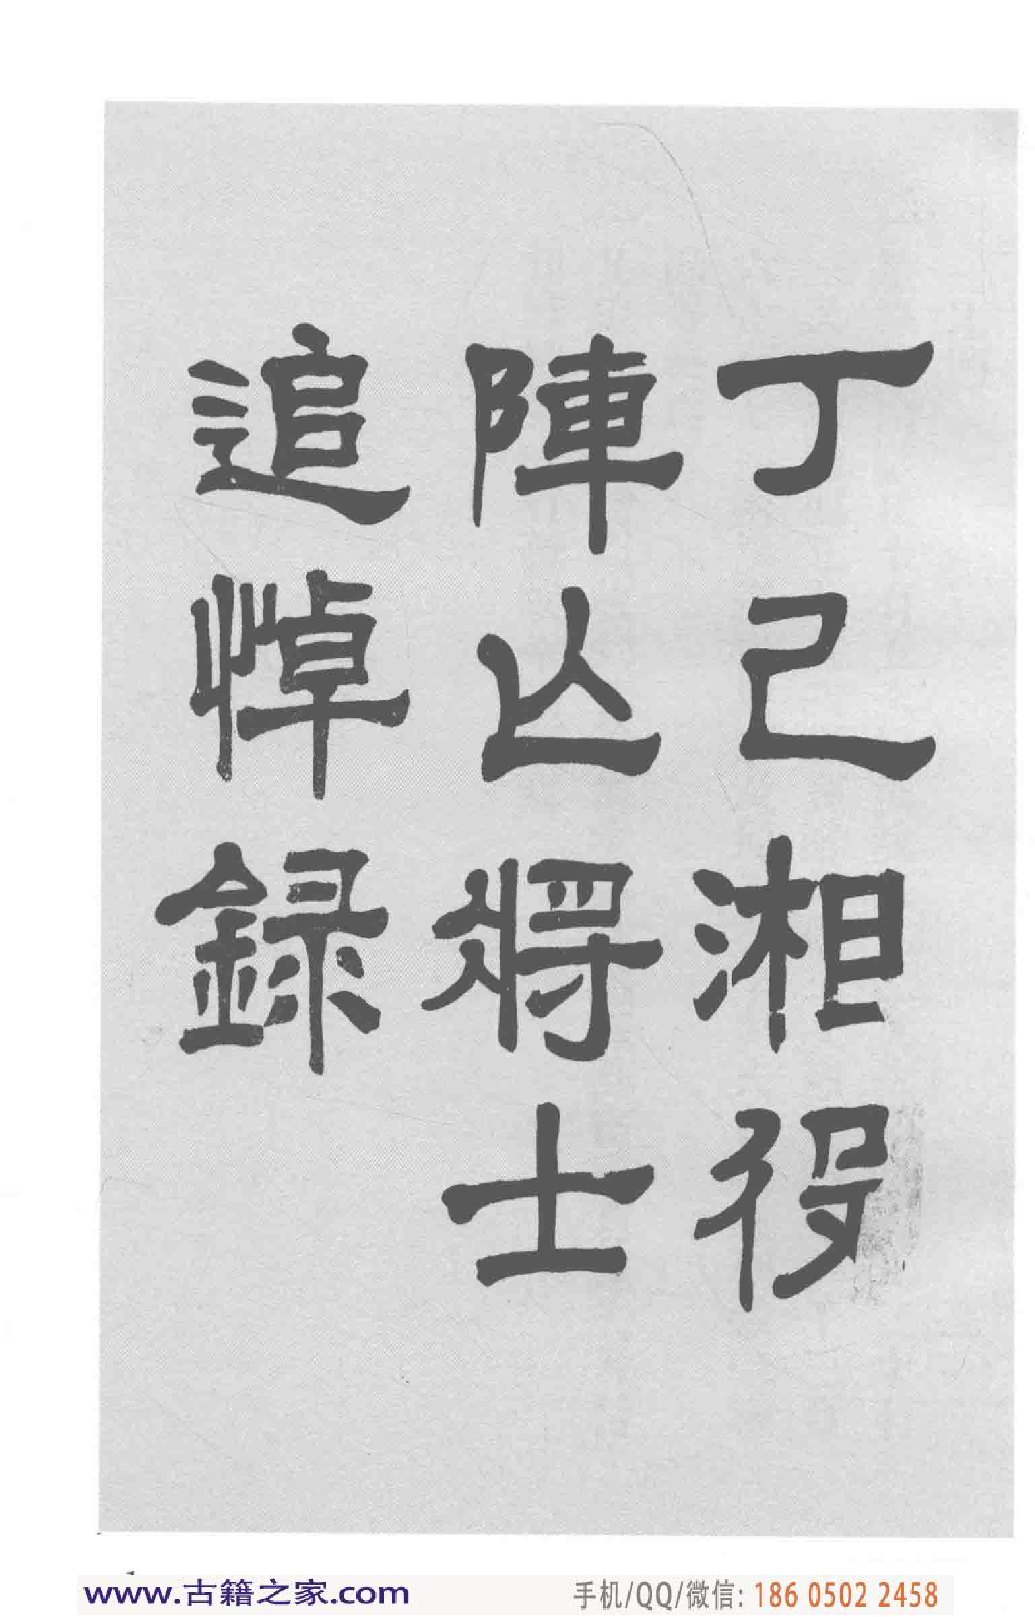 丁巳湘役
陣亾將士
追悼録
www.古籍之家.com
手机/QQ/微信: 186 0502 2458